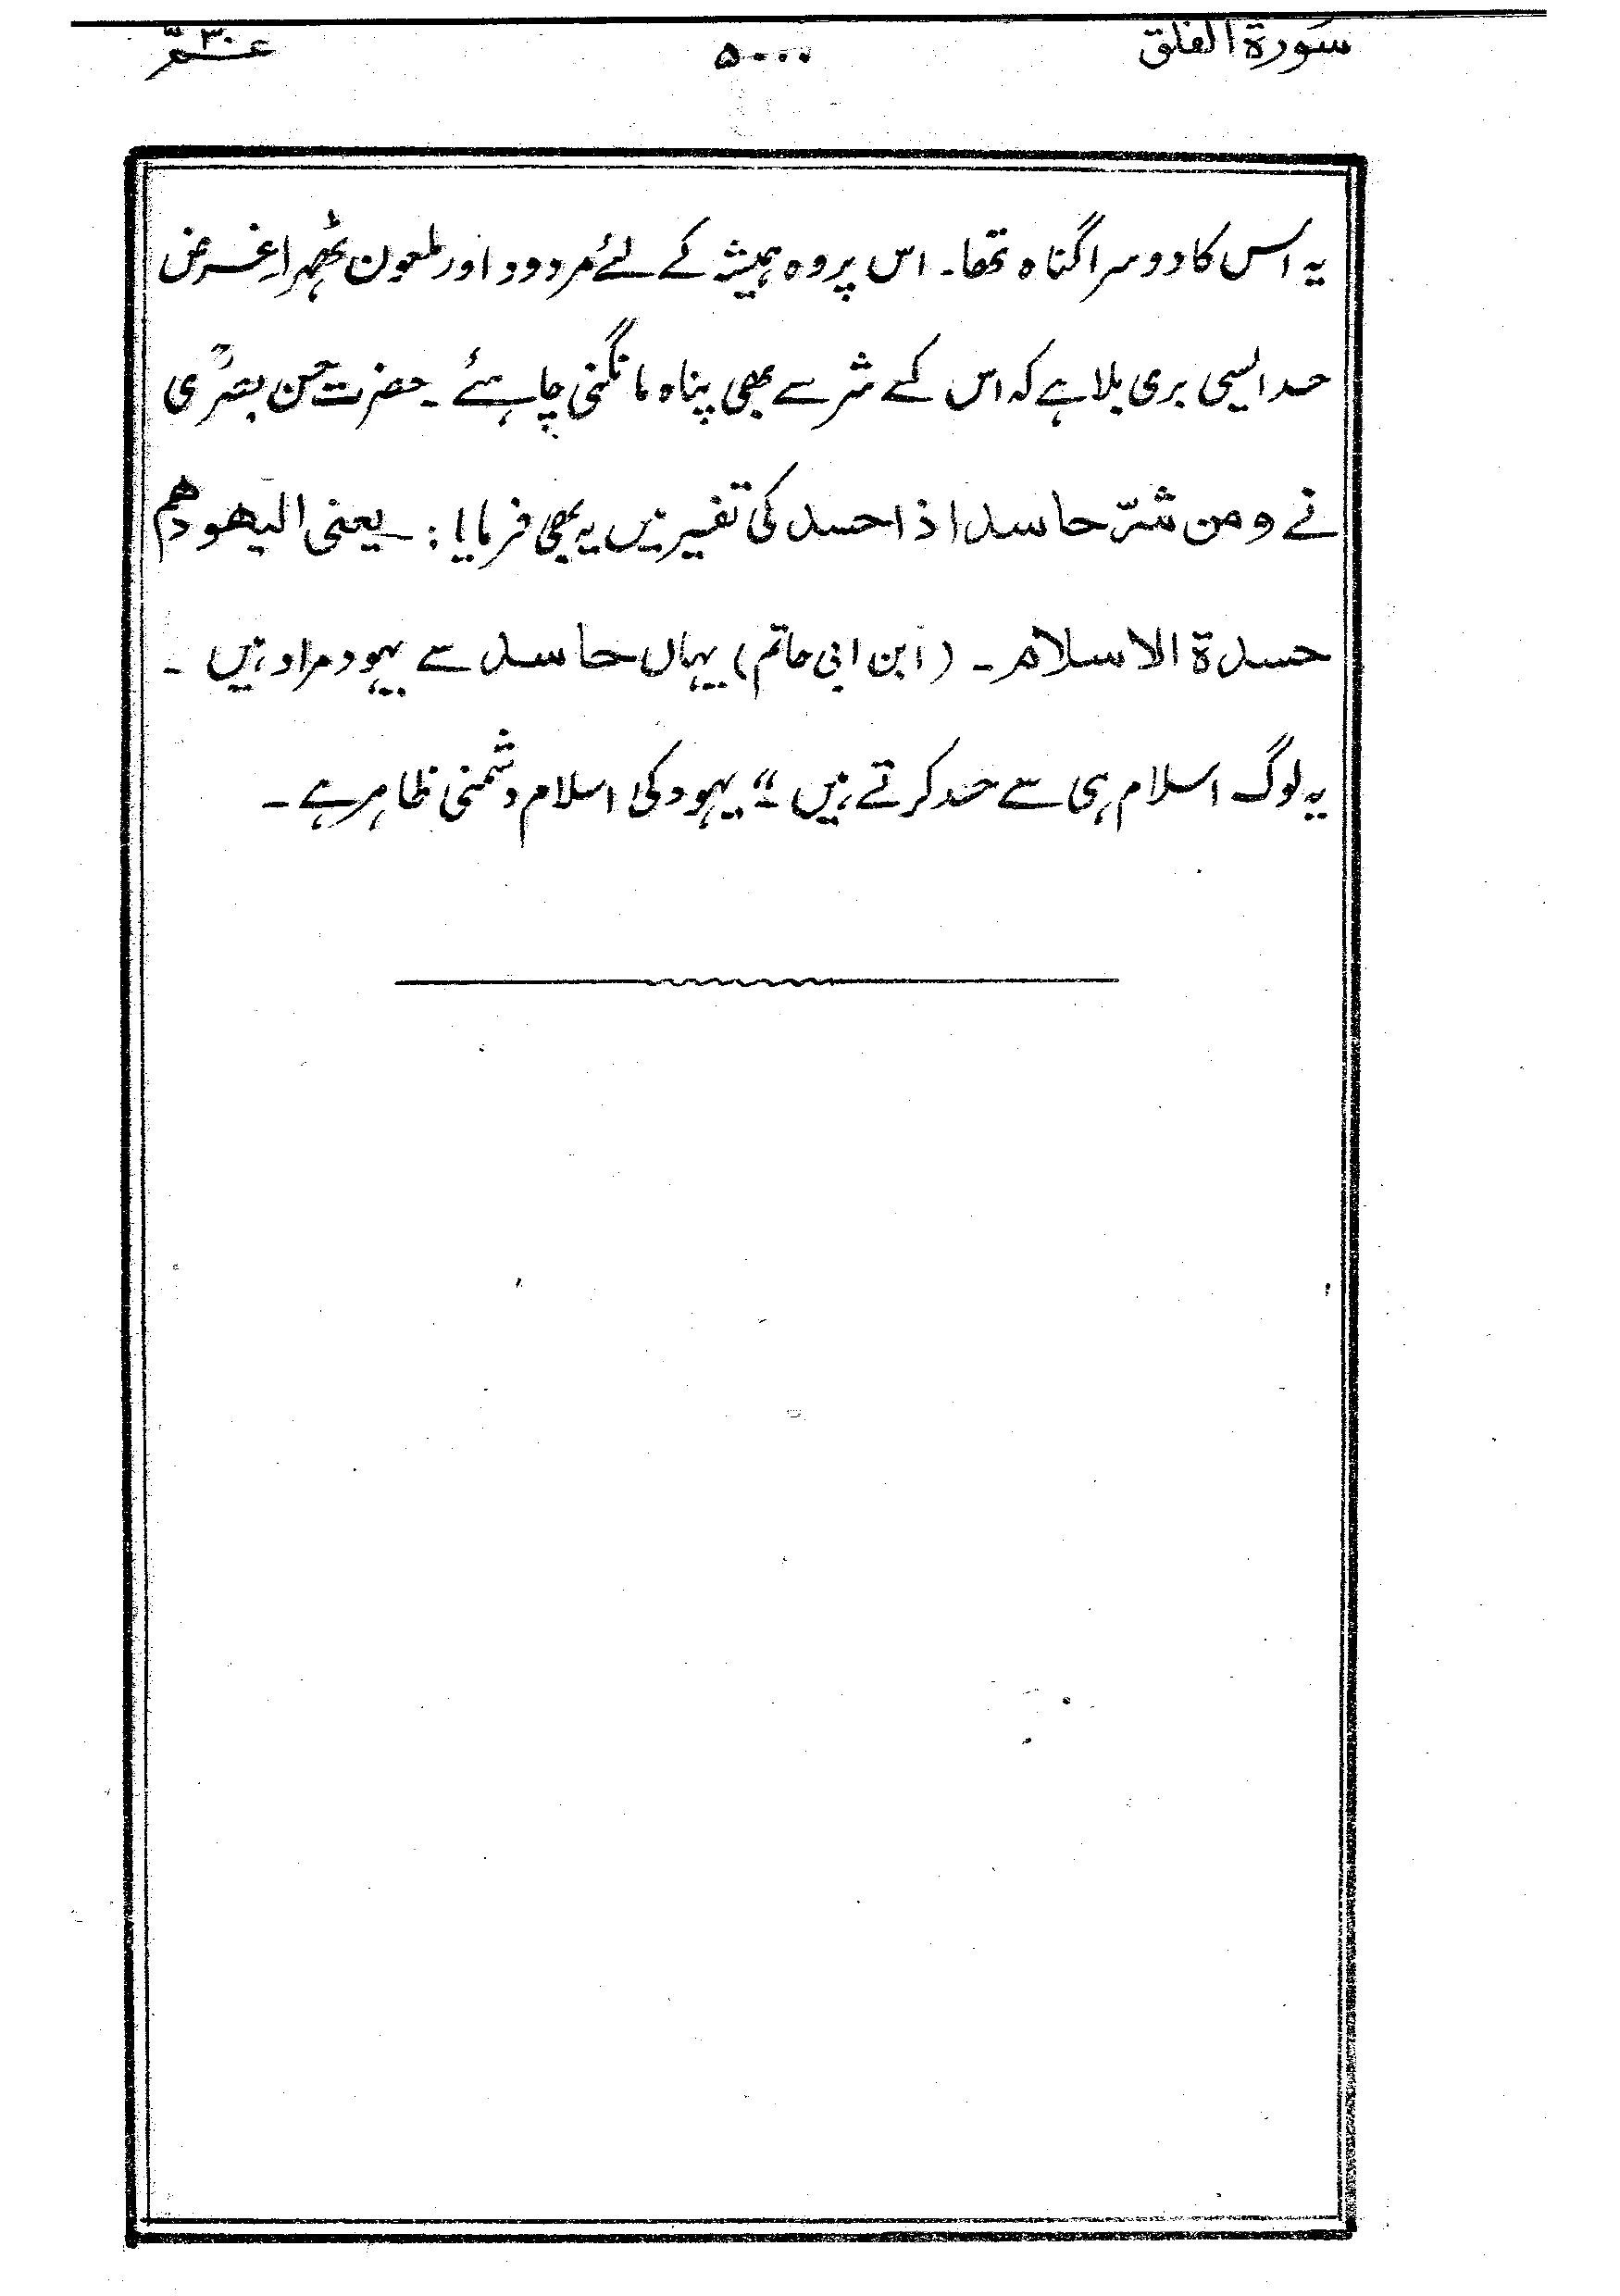 سورة الفلق ۵۰۰۰ عـمّ ۳۰
یہ اس کا دوسرا گناہ تھا۔ اس پر وہ ہمیشہ کے لئے مردود اور ملعون ٹھہرا غرض
حسد ایسی بری بلا ہے کہ اس کے شر سے بھی پناہ مانگنی چاہئے۔ حضرت حسن بصریؒ
نے ومن شرّ حاسد اذا حسد کی تفسیر میں یہ بھی فرمایا: یعنی الیھود ھم
حسدة الاسلام۔ (ابن ابی حاتم) یہاں حاسد سے یہود مراد ہیں۔
یہ لوگ اسلام ہی سے حسد کرتے ہیں۔“ یہود کی اسلام دشمنی ظاہر ہے۔